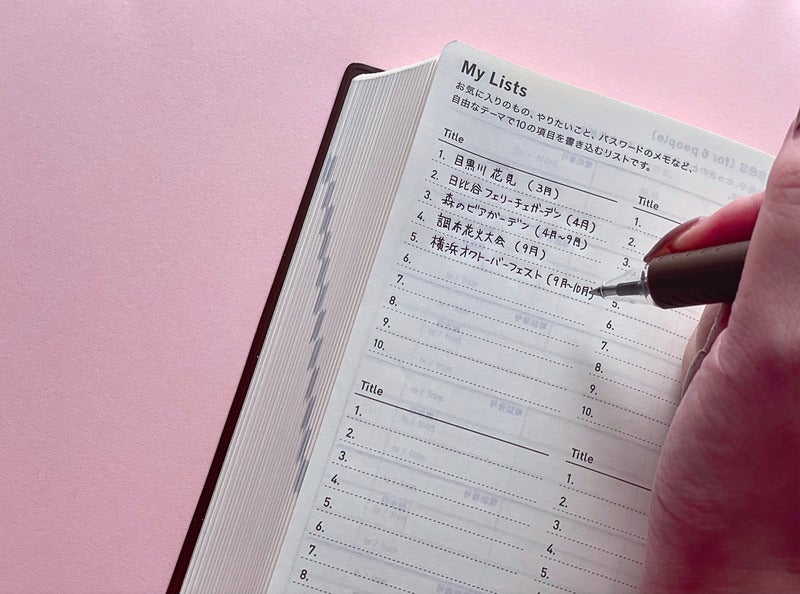 My Lists
お気に入りのもの、やりたいこと、パスワードのメモなど、
自由なテーマで10の項目を書き込むリストです。
Title
1. 目黒川 花見 (3月)
2. 日比谷フェリーチェガーデン(4月)
3. 森のビアガーデン(4月〜9月)
4. 調布花火大会 (9月)
5. 横浜オクトーバーフェスト(9月〜10月)
6.
7.
8.
9.
10.
Title
1.
2.
3.
5.
6.
7.
8.
9.
10.
Title
1.
2.
3.
4.
5.
6.
7.
8.
Title
1.
2.
3.
4.
5.